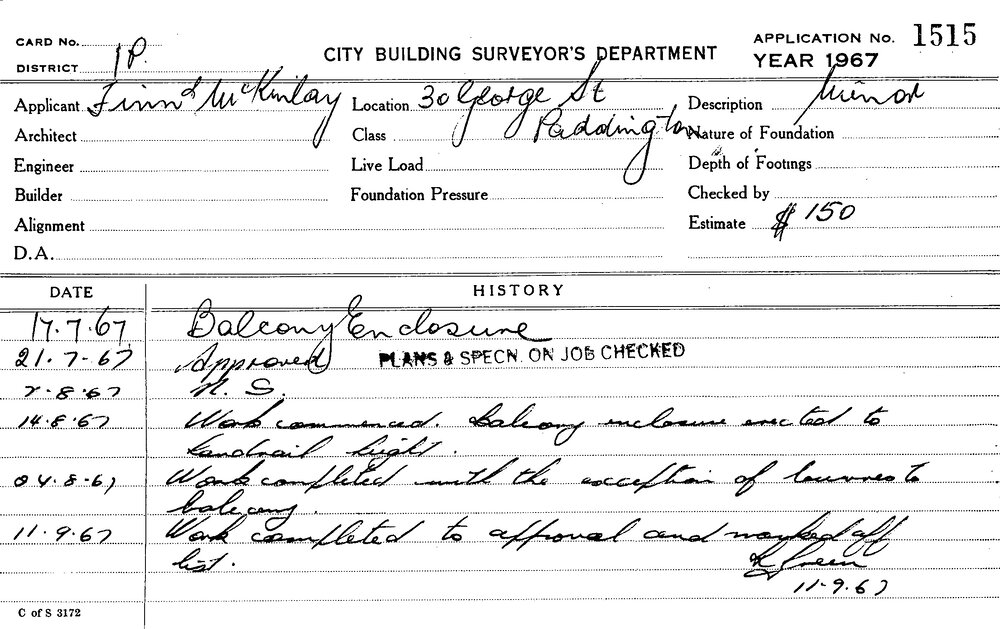 CARD No.
DISTRICT 1P.
CITY BUILDING SURVEYOR'S DEPARTMENT
APPLICATION No. 1515
YEAR 1967
Applicant Finn & McKinlay Location 30 George St Description Minor
Architect Class Paddington Nature of Foundation
Engineer Live Load Depth of Footings
Builder Foundation Pressure Checked by
Alignment Estimate $ 150
D.A.
DATE HISTORY
17.7.67 Balcony Enclosure
21.7-67 Approved PLANS & SPECN. ON JOB CHECKED
2.8.67 N. S.
14.8.67 Work commenced. Balcony enclosure erected to
handrail hight.
8.67 Work completed with the exception of louvres to
balcony.
11.9.67 Work completed to approval and marked off
list. Green
11-9.67
C of S 3172